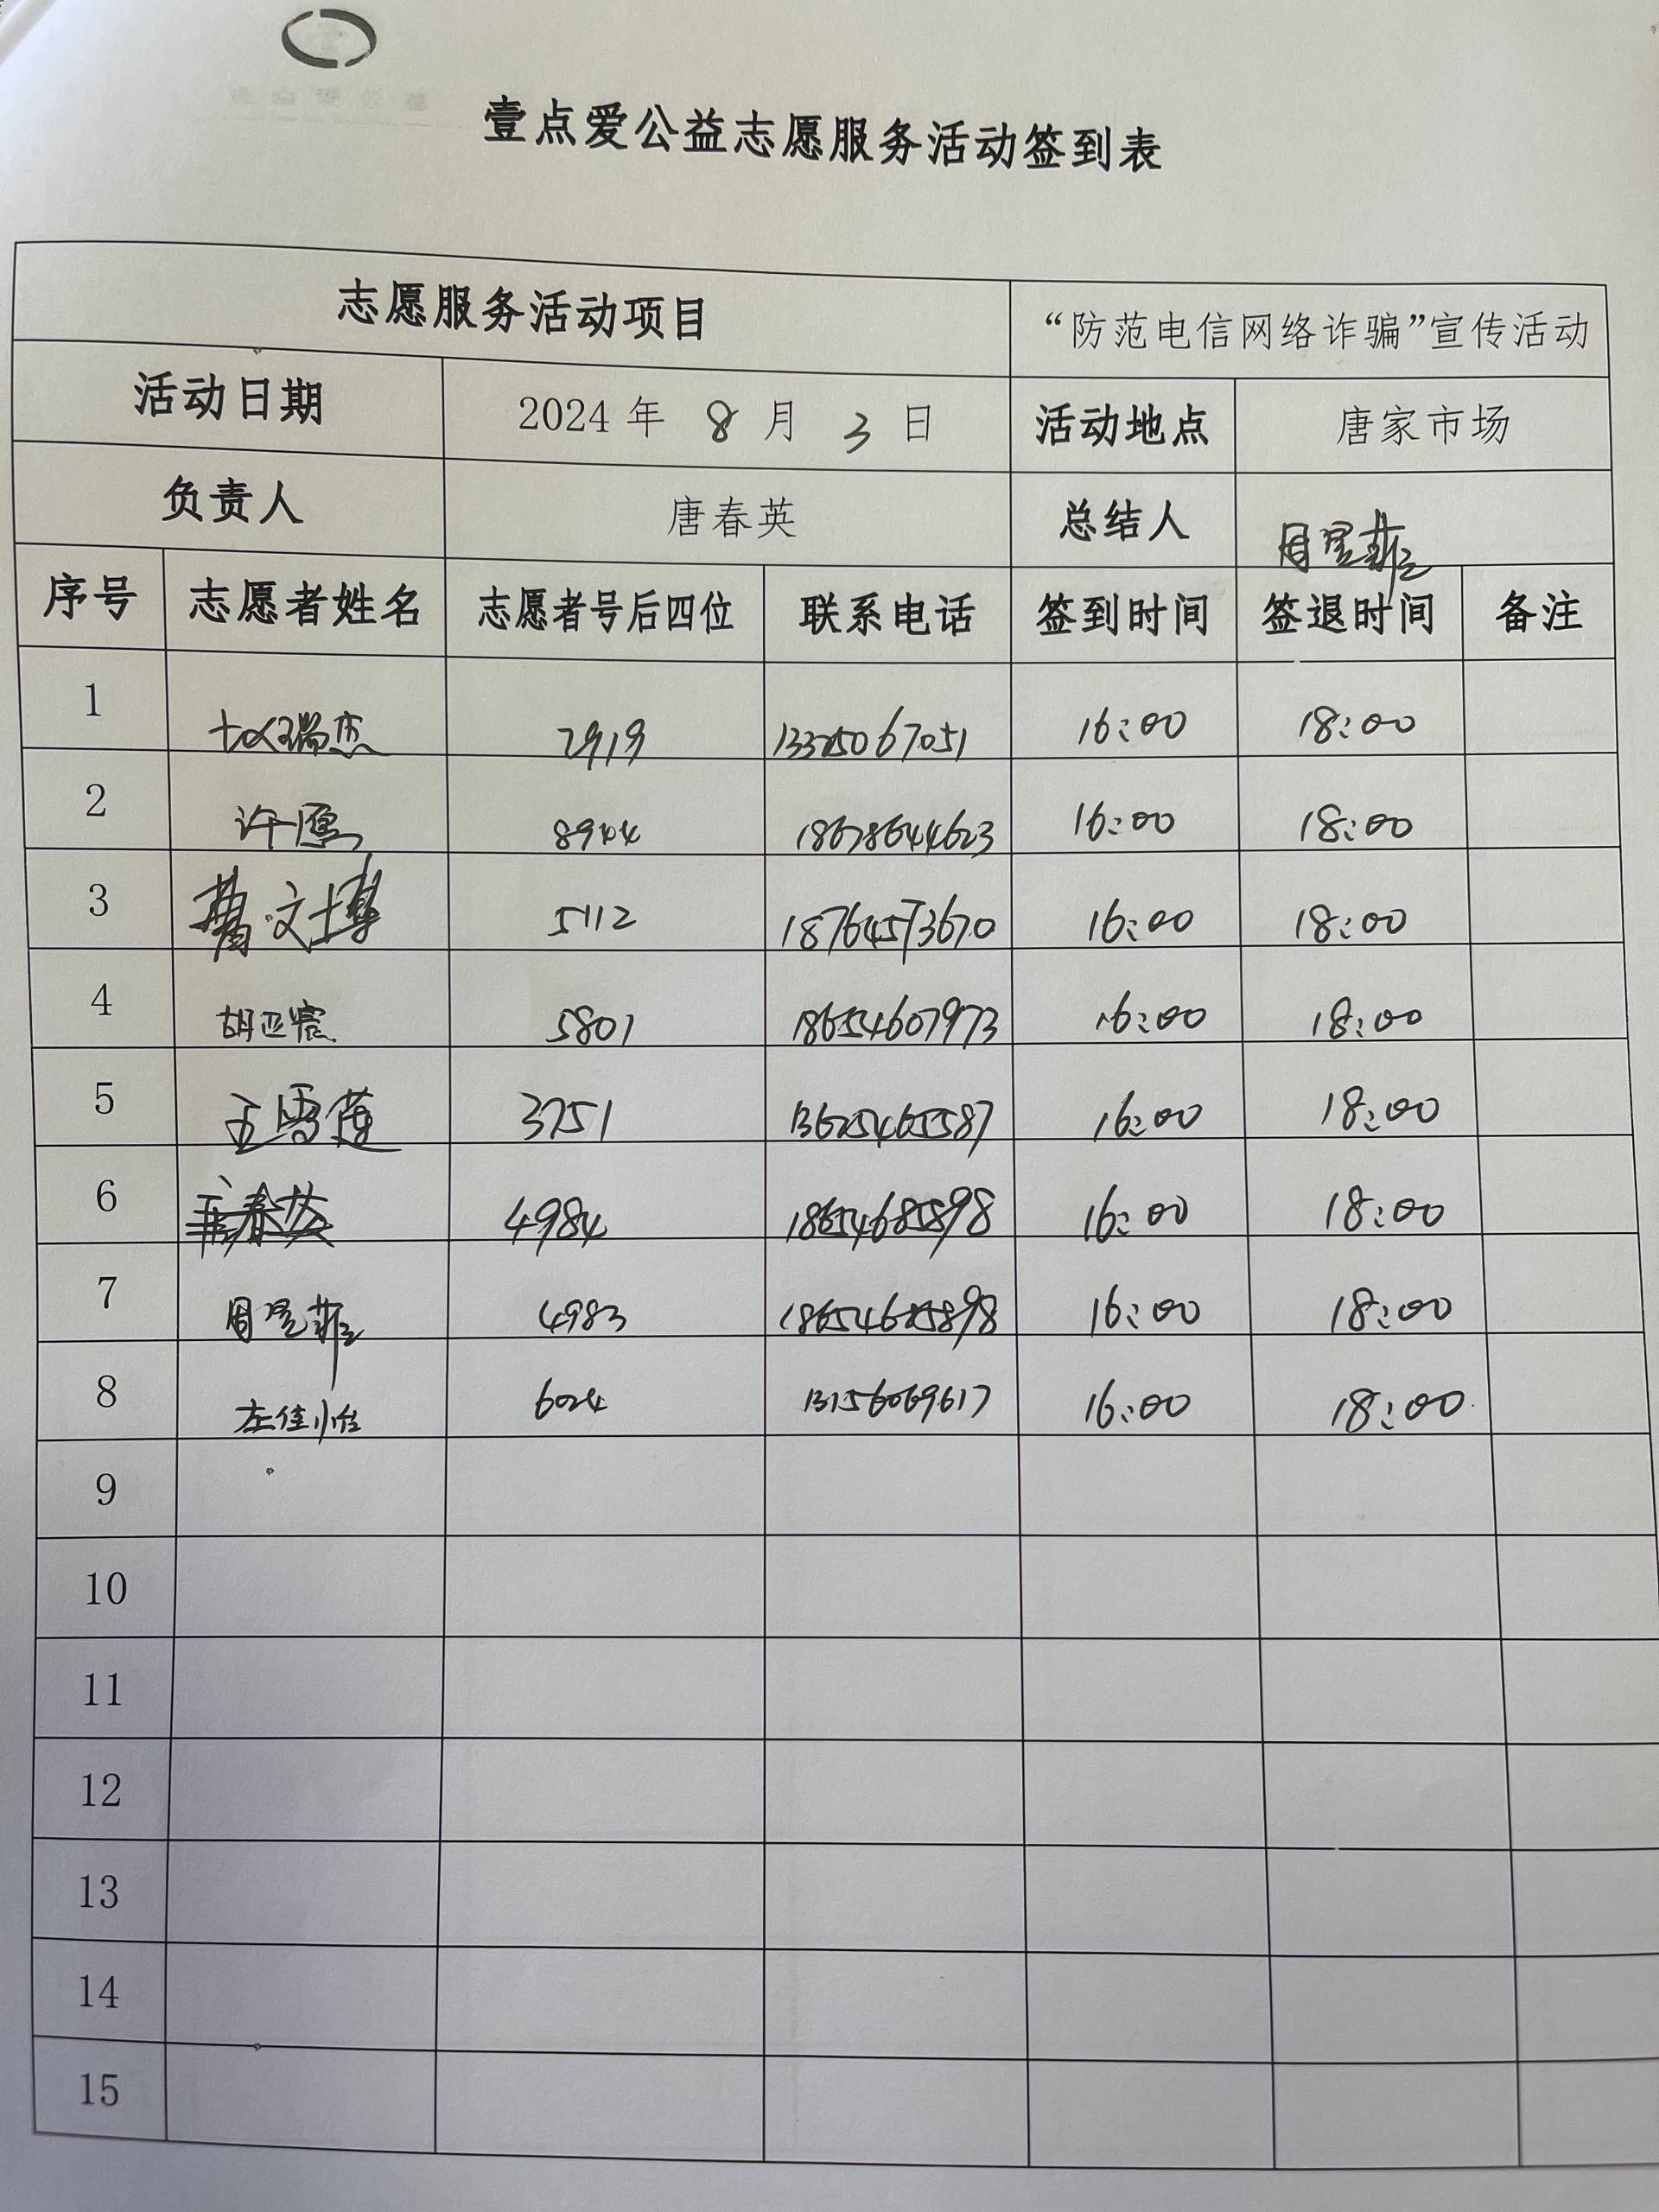 壹点爱公益志愿服务活动签到表
志愿服务活动项目 “防范电信网络诈骗”宣传活动
活动日期 2024 年 8 月 3 日 活动地点 唐家市场
负责人 唐春英 总结人 周星菲
序号 志愿者姓名 志愿者号后四位 联系电话 签到时间 签退时间 备注
1 瑞杰 2919 13325067051 16:00 18:00
2 许愿 8944 18678644623 16:00 18:00
3 曹文博 5112 18764573670 16:00 18:00
4 胡亚宸 5801 18654607973 16:00 18:00
5 王雪莲 3751 13625465587 16:00 18:00
6 唐春英 4984 18654685898 16:00 18:00
7 周星菲 4983 18654685898 16:00 18:00
8 左佳怡 6024 13156069617 16:00 18:00
9
10
11
12
13
14
15